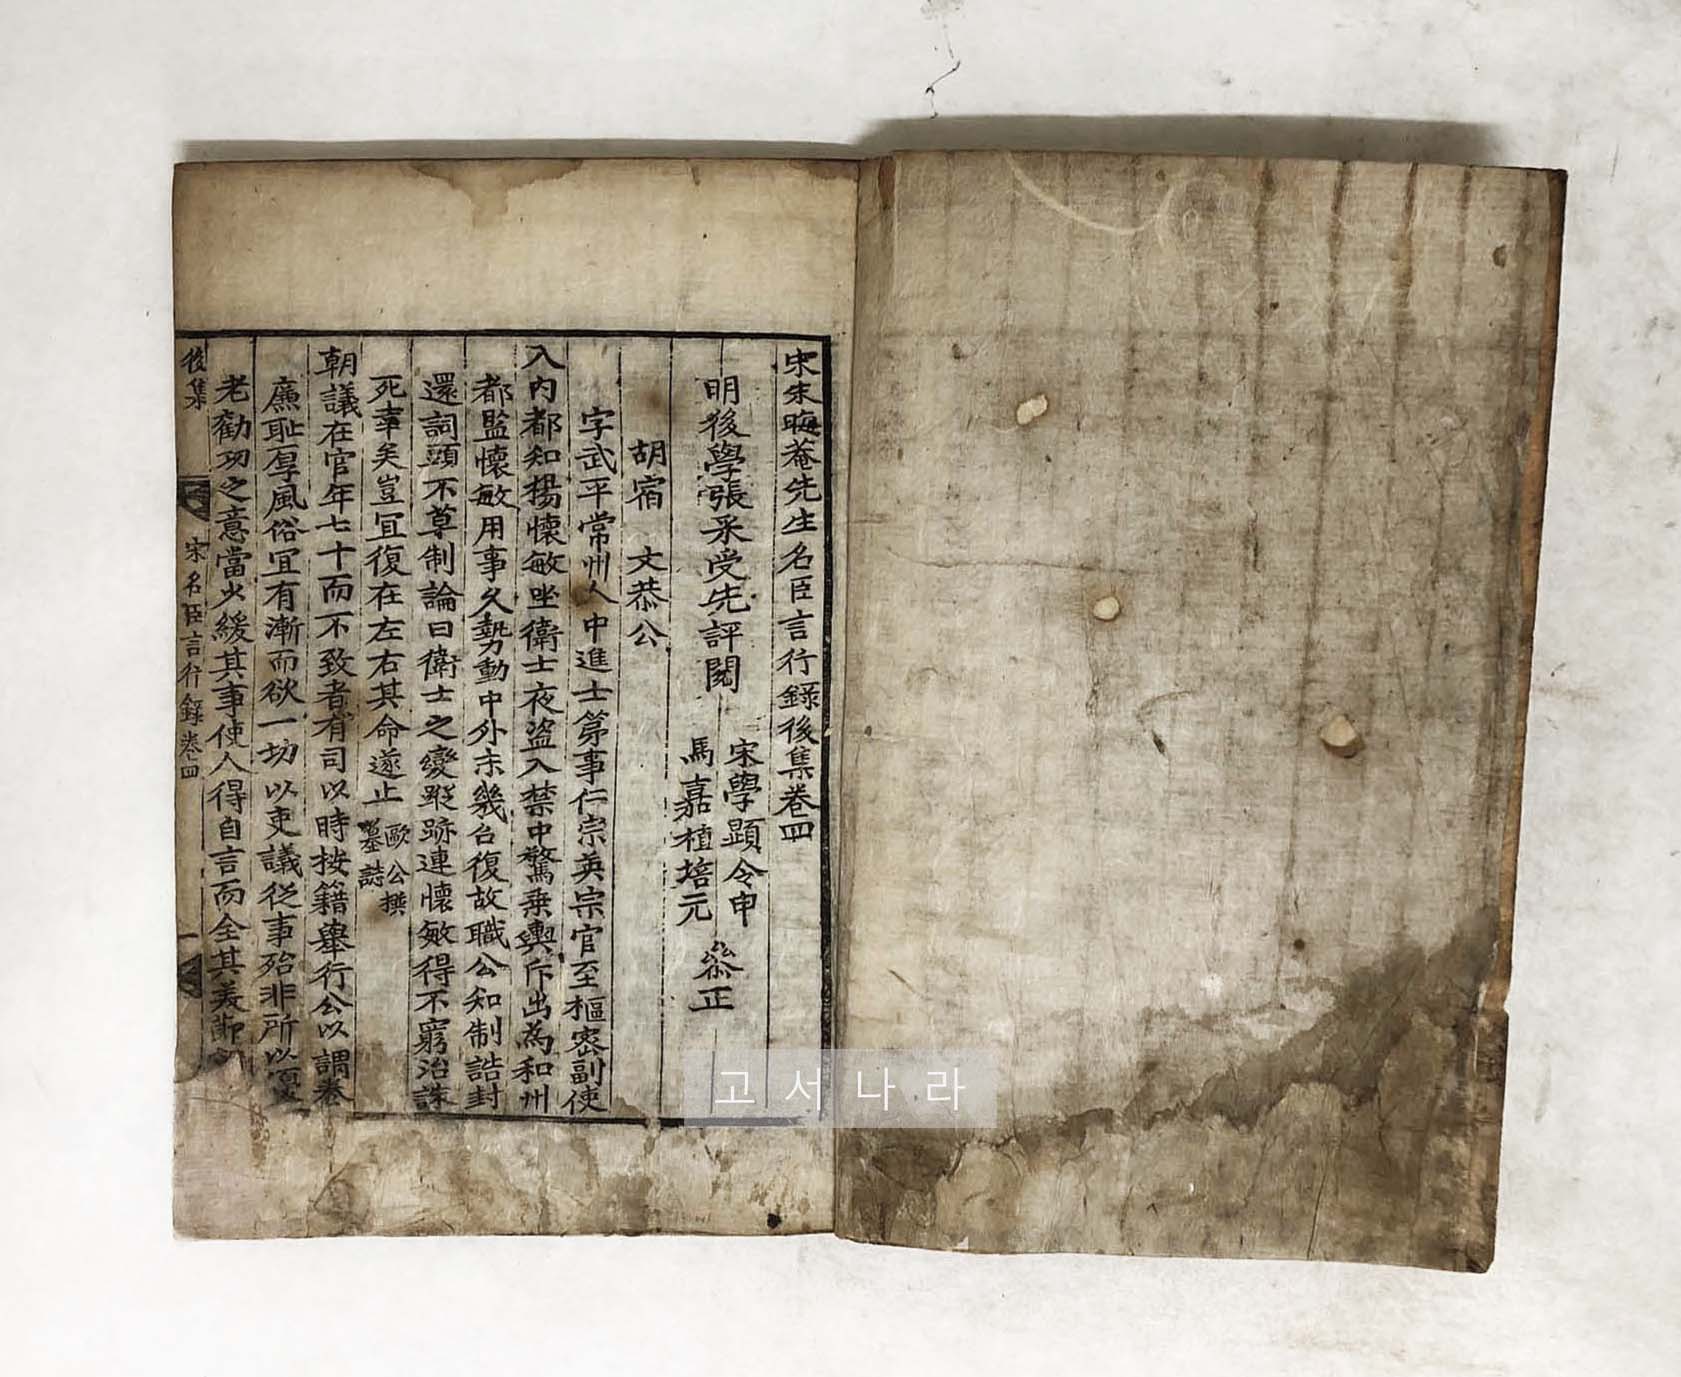 宋朱晦菴先生名臣言行錄後集卷四
明後學張采受先評閱
宋學顯令申
馬嘉植培元
叅正
胡宿 文恭公
字武平常州人中進士第事仁宗英宗官至樞密副使
入內都知楊懷敏坐衛士夜盜入禁中驚乗輿斥出為和州
都監懷敏用事久勢動中外未幾台復故職公知制誥封
還詞頭不草制論曰衛士之變蹤跡連懷敏得不窮治誅
死幸矣豈冝復在左右其命遂止 歐公撰
墓誌
朝議在官年七十而不致者有司以時按籍舉行公以謂養
廉恥厚風俗冝有漸而欲一切以吏議從事殆非所以優
老勸功之意當少緩其事使人得自言而全其美節
後集
宋名臣言行錄卷四
一
고서나라